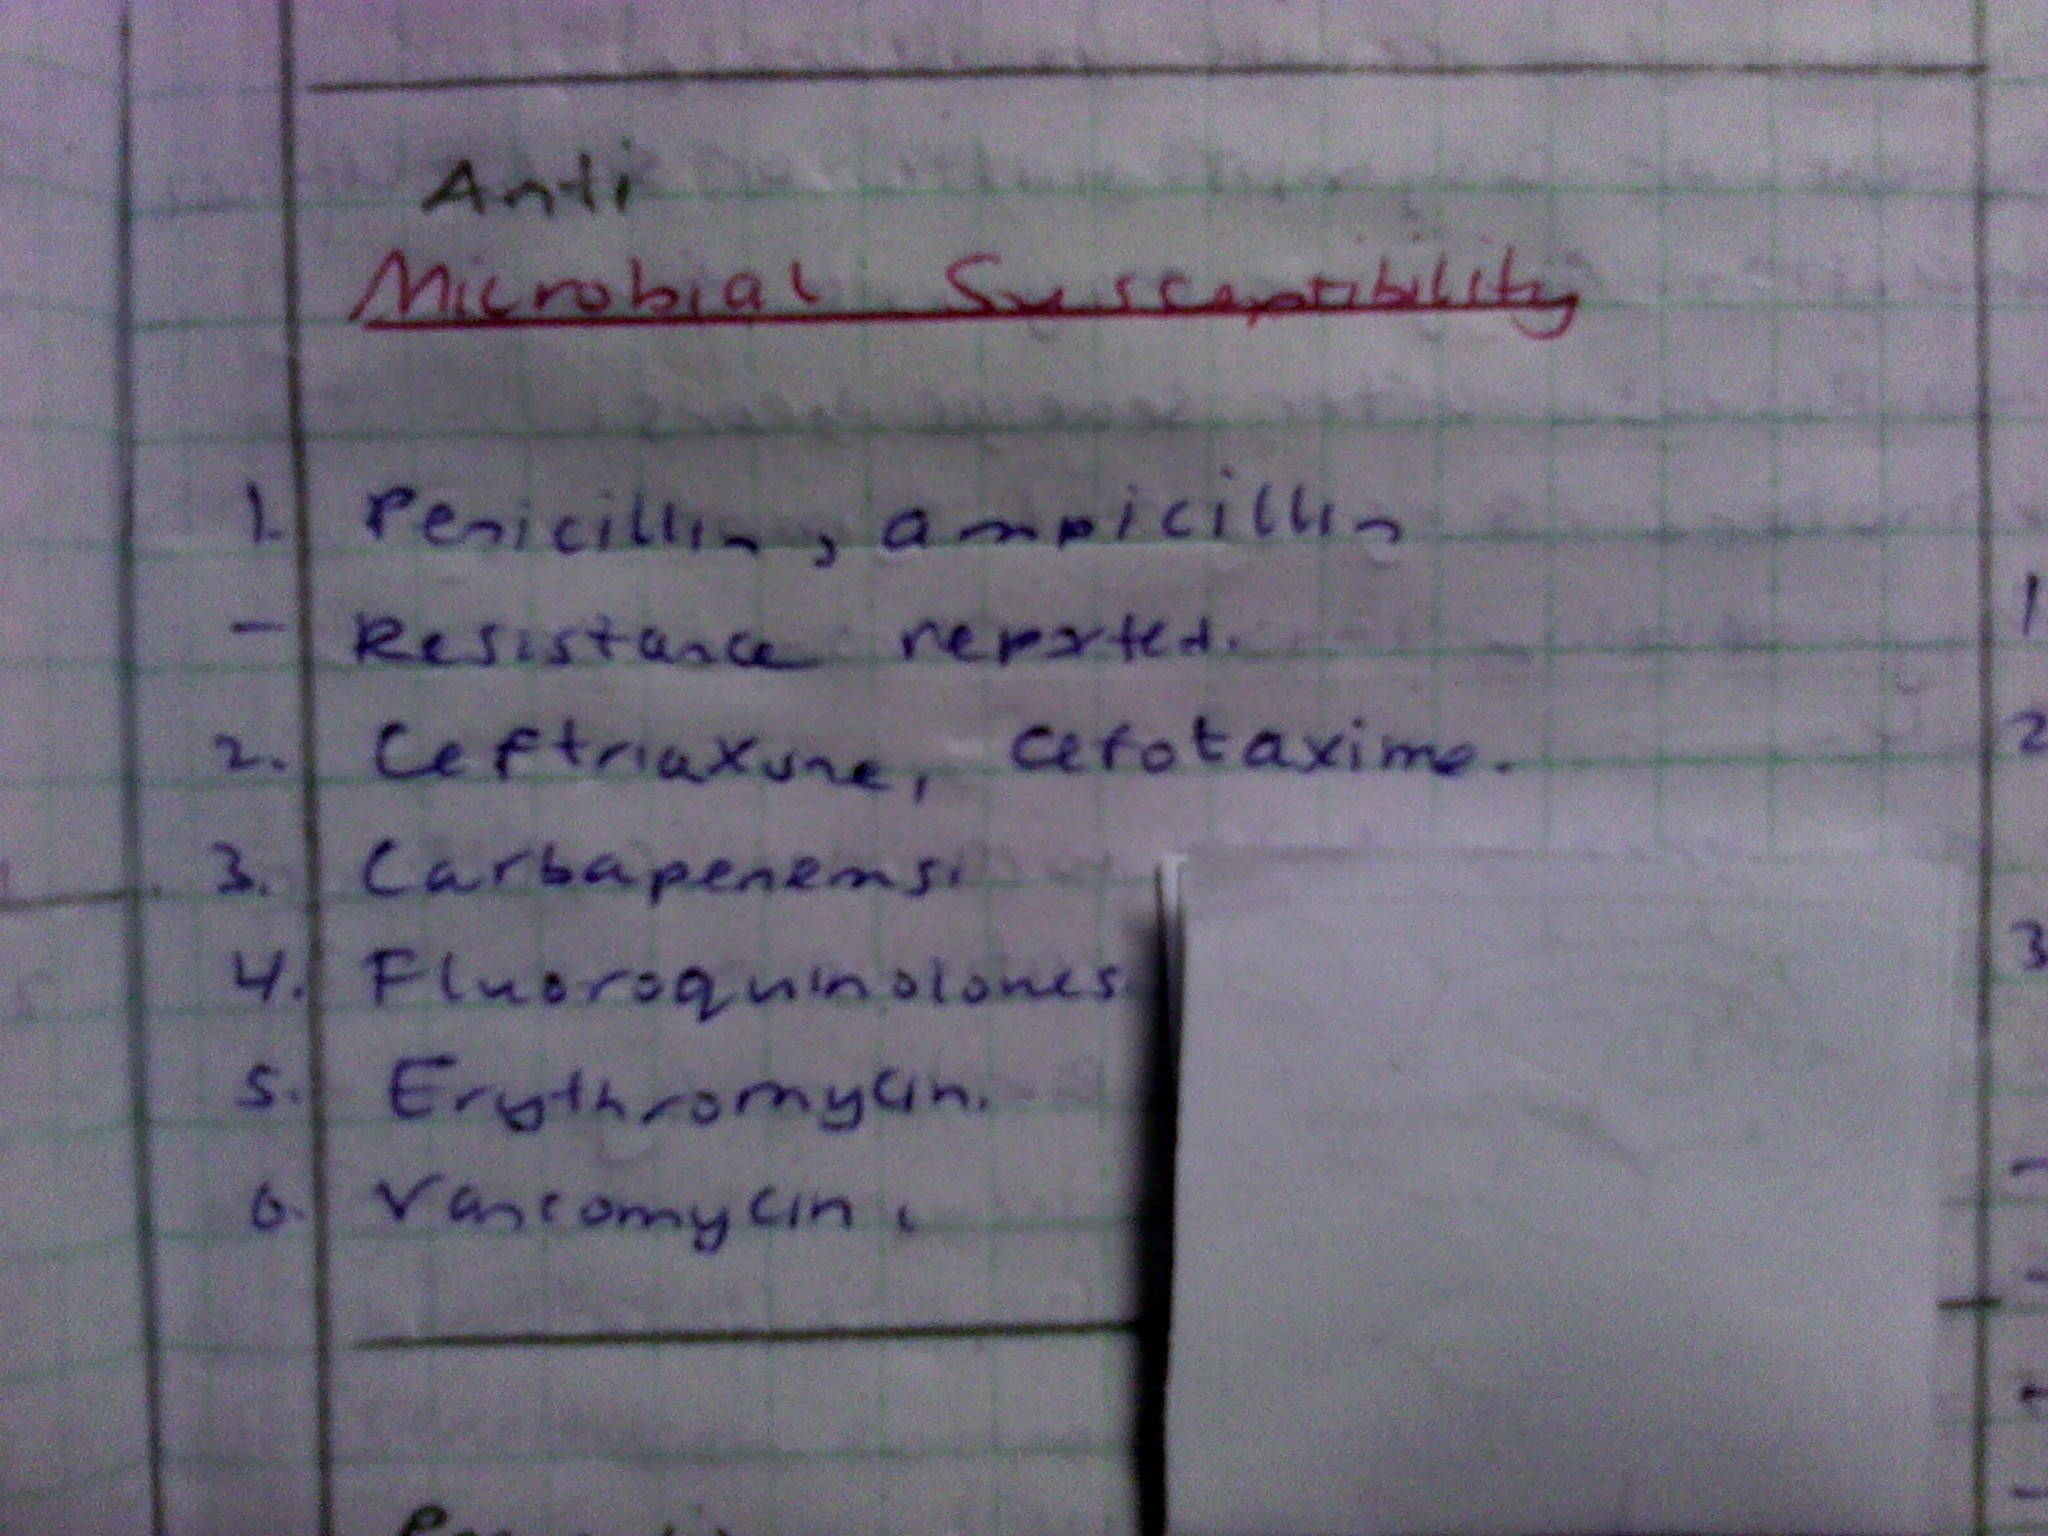 Anti
Microbial Susceptibility
1. Penicillin, ampicillin
- Resistance reported.
2. Ceftriaxone, cefotaxime.
3. Carbapenems.
4. Fluoroquinolones.
5. Erythromycin.
6. Vancomycin.
1
2
3